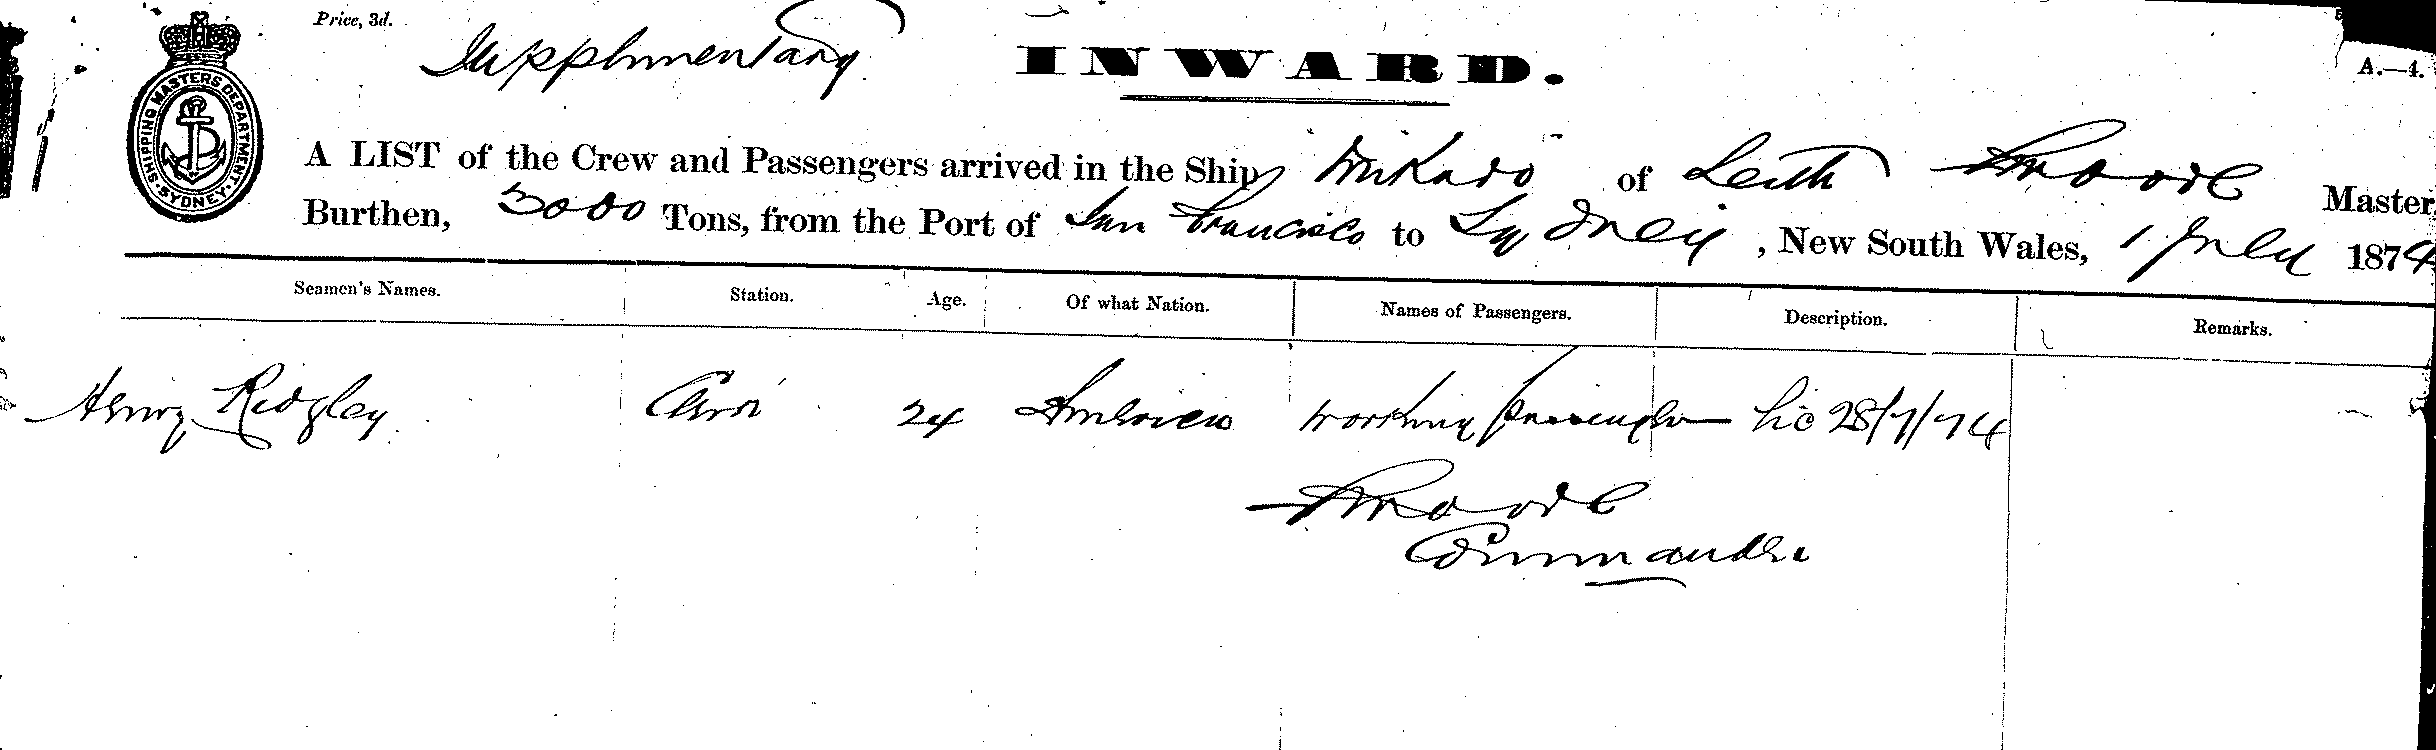 Price, 3d.
Supplimentary
INWARD.
A.—4.
SHIPPING MASTERS DEPARTMENT SYDNEY
A LIST of the Crew and Passengers arrived in the Ship Mikado of Leith Moore Master
Burthen, 3000 Tons, from the Port of San Francisco to Sydney, New South Wales, 1 July 1874
Seamen's Names. Station. Age. Of what Nation. Names of Passengers. Description. Remarks.
Henry Ridgley 24 America working passenger 28/7/74
Moore
Commander